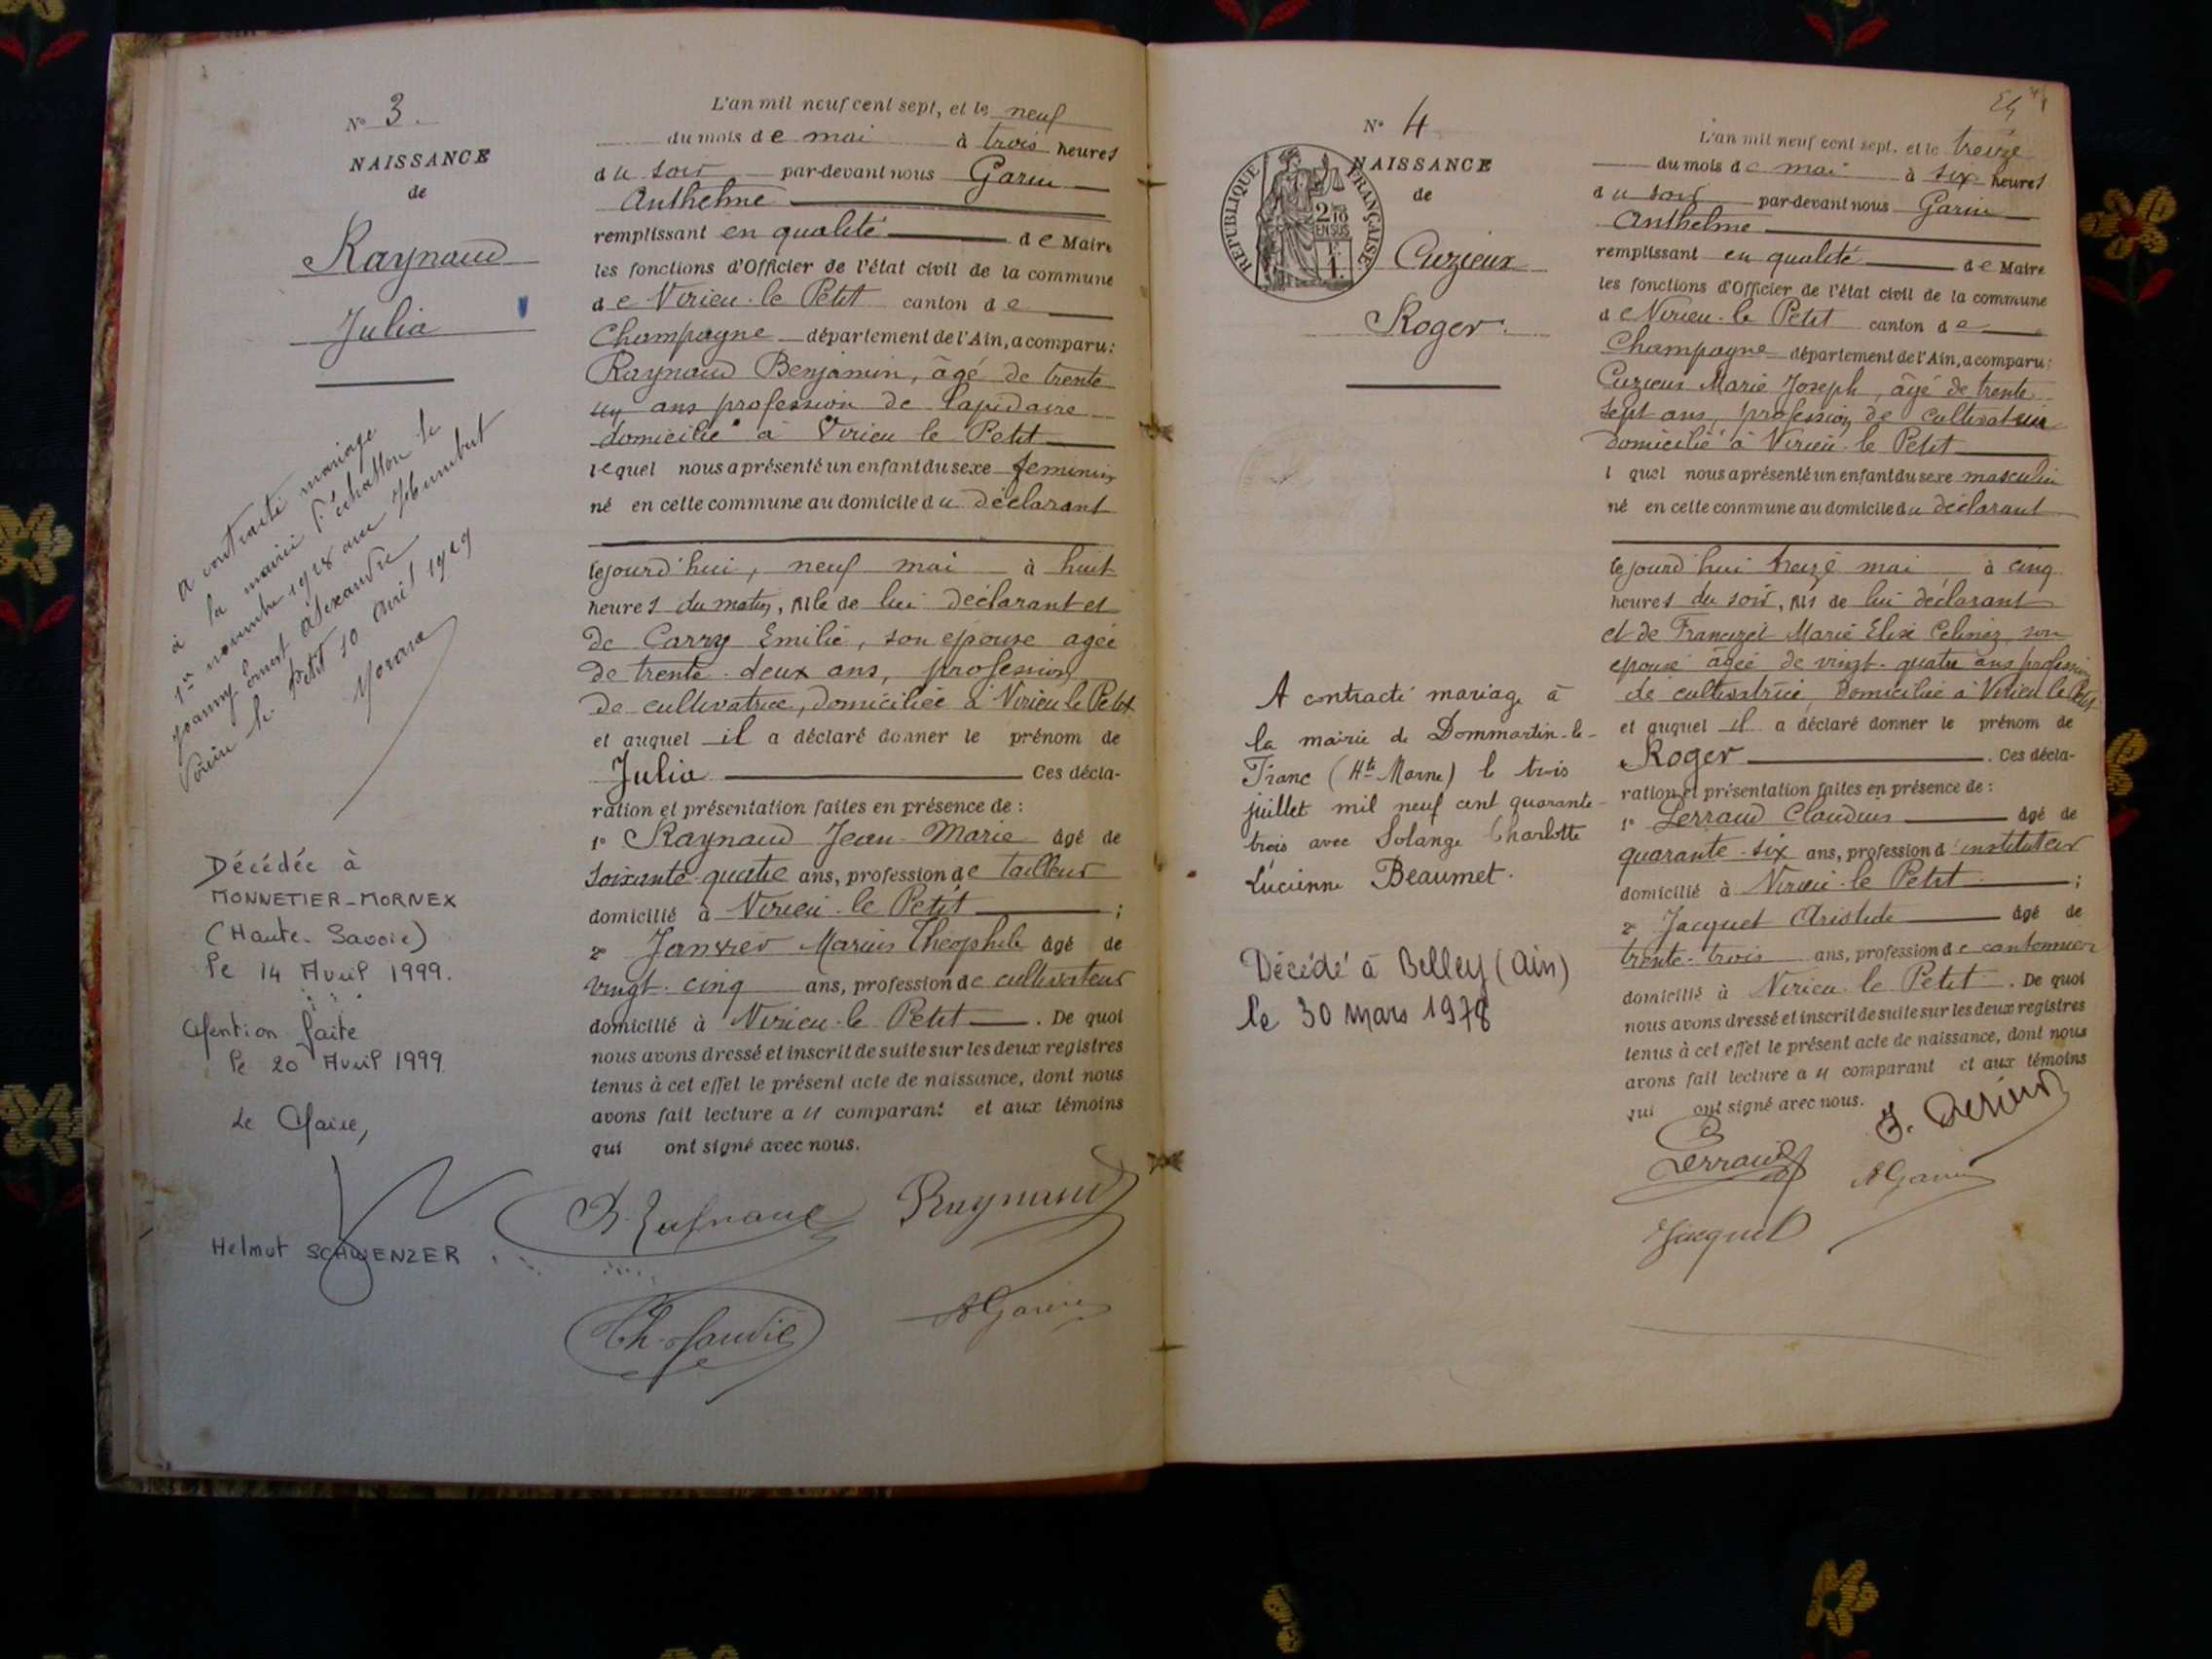 N° 3.
NAISSANCE
de
Raynaud
Julia
A contracté mariage
à la mairie d'Échallon le
1er novembre 1928 avec Humbert
Joanny Ernest Alexandre
Virieu le Petit 10 avril 1929
Décédée à
MONNETIER-MORNEX
(Haute-Savoie)
le 14 Avril 1999.
Mention faite
le 20 Avril 1999.
Le Maire,
Helmut SCHWENZER
L'an mil neuf cent sept, et le neuf
du mois de mai à trois heures
du soir par-devant nous Garin
Anthelme
remplissant en qualité de Maire
les fonctions d'Officier de l'état civil de la commune
de Virieu-le Petit canton de
Champagne département de l'Ain, a comparu:
Raynaud Benjamin, âgé de trente
un ans profession de lapidaire
domicilié à Virieu le Petit
lequel nous a présenté un enfant du sexe feminin
né en cette commune au domicile du déclarant
cejourd'hui, neuf mai à huit
heures du matin, fille de lui déclarant et
de Carry Emilie, son épouse agée
de trente-deux ans, profession
de cultivatrice, domiciliée à Virieu le Petit
et auquel il a déclaré donner le prénom de
Julia Ces décla-
ration et présentation faites en présence de :
1° Raynaud Jean-Marie âgé de
soixante-quatre ans, profession de tailleur
domicilié à Virieu-le Petit ;
2° Janvier Marius Théophile âgé de
vingt-cinq ans, profession de cultivateur
domicilié à Virieu-le Petit . De quoi
nous avons dressé et inscrit de suite sur les deux registres
tenus à cet effet le présent acte de naissance, dont nous
avons fait lecture au comparant et aux témoins
qui ont signé avec nous.
Raynaud
AGarin
N° 4
NAISSANCE
de
RÉPUBLIQUE FRANÇAISE
2/10 EN SUS
Cuzieux
Roger.
A contracté mariage à
la mairie de Dommartin-le-
Franc (Hte Marne) le trois
juillet mil neuf cent quarante-
trois avec Solange Charlotte
Lucienne Beaumet.
Décédé à Belley (Ain)
le 30 Mars 1978
L'an mil neuf cent sept, et le treize
du mois de mai à six heures
du soir par-devant nous Garin
Anthelme
remplissant en qualité de Maire
les fonctions d'Officier de l'état civil de la commune
de Virieu-le Petit canton de
Champagne département de l'Ain, a comparu:
Cuzieux Marie Joseph, âgé de trente
sept ans, profession de cultivateur
domicilié à Virieu-le Petit
l quel nous a présenté un enfant du sexe masculin
né en cette commune au domicile du déclarant
cejourd'hui treize mai à cinq
heures du soir, fils de lui déclarant
et de Marie Elise son
épouse âgée de vingt-quatre ans profession
de cultivatrice, domiciliée à Virieu le Petit
et auquel il a déclaré donner le prénom de
Roger . Ces décla-
ration et présentation faites en présence de :
1° Perraud Claudius âgé de
quarante-six ans, profession d'instituteur
domicilié à Virieu-le Petit ;
2° Jacquet Aristide âgé de
trente-trois ans, profession de cantonnier
domicilié à Virieu-le Petit . De quoi
nous avons dressé et inscrit de suite sur les deux registres
tenus à cet effet le présent acte de naissance, dont nous
avons fait lecture au comparant et aux témoins
qui ont signé avec nous.
Perraud
AGarin
Jacquet